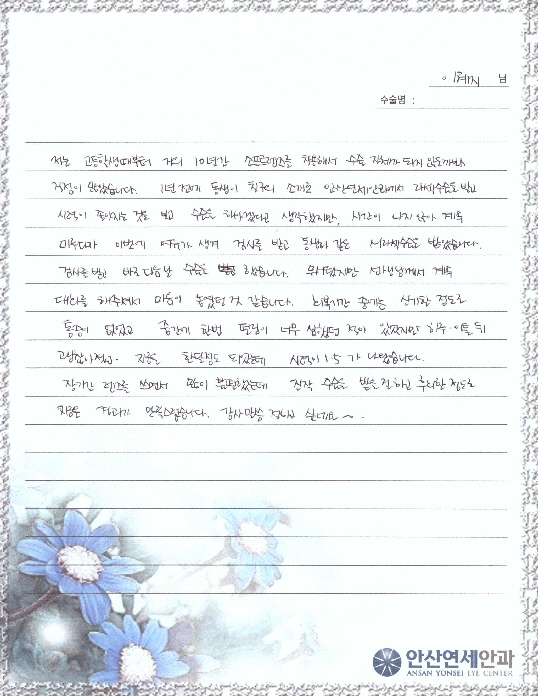 이혜지 님
수술명 :
저는 고등학생때부터 거의 10년간 소프트렌즈를 착용해서 수술 자체가 되지 않을까봐
걱정이 많았습니다. 1년 전에 동생이 친구의 소개로 안산연세안과에서 라식수술을 받고
시력이 좋아지는 것을 보고 수술을 해야겠다고 생각했지만, 시간이 나지 않아 계속
미루다가 이번에 여유가 생겨 검사를 받고 동생과 같은 라식수술을 받았습니다.
검사를 받고 바로 다음날 수술을 했습니다. 무서웠지만 선생님께서 계속
대화를 해주셔서 마음이 놓였던것 같습니다. 회복기간 중에는 신기할 정도로
통증이 없었고 중간에 한번 떨림이 너무 심했던 적이 있었지만 하루·이틀 뒤
괜찮아졌고. 지금은 한달정도 되었는데 시력이 1.5 가 나왔습니다.
장기간 렌즈를 쓰면서 많이 불편했는데 진작 수술을 받을 걸 하고 후회할 정도로
지금은 결과가 만족스럽습니다. 감사말씀 전하고 싶네요~.
안산연세안과
ANSAN YONSEI EYE CENTER